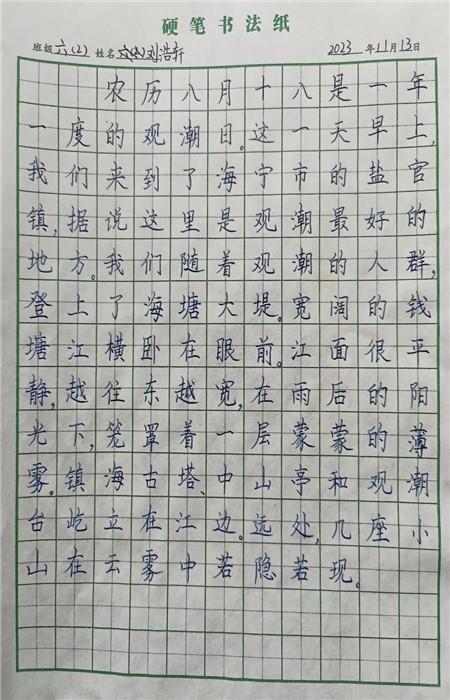 硬笔书法纸
班级 六(2) 姓名 刘浩轩 2023年11月13日
农历八月十八是一年
一度的观潮日。这一天早上,
我们来到了海宁市的盐官
镇,据说这里是观潮最好的
地方。我们随着观潮的人群,
登上了海塘大堤。宽阔的钱
塘江横卧在眼前。江面很平
静,越往东越宽,在雨后的阳
光下,笼罩着一层蒙蒙的薄
雾。镇海古塔、中山亭和观潮
台屹立在江边。远处,几座小
山在云雾中若隐若现。